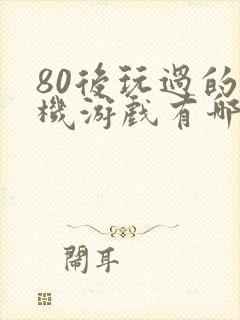 80後玩過的
機游戲有哪
鬧耳